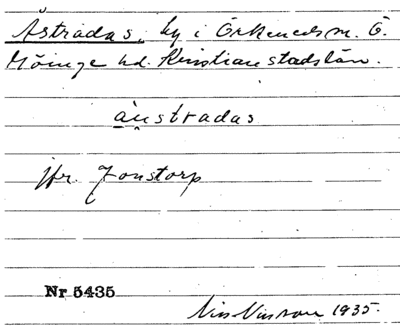 Åstradas, by i Örkeneds sn. Ö.
Göinge hd. Kristianstads län.
åustradas
jfr. Jonstorp
Nr 5435
1935.